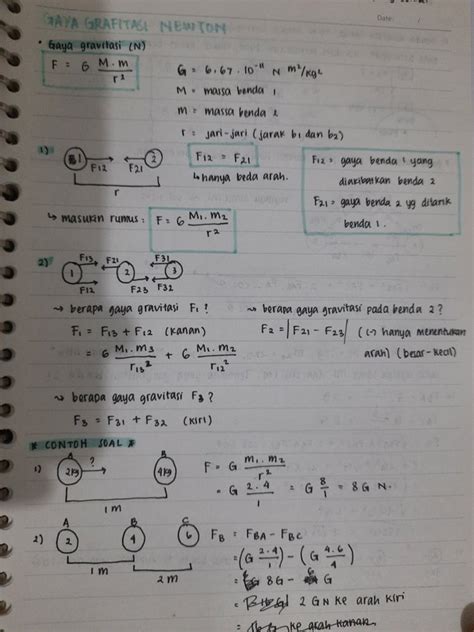 Date:
GAYA GRAFITASI NEWTON
• Gaya gravitasi (N)
F = G M.m / r²
G = 6,67 . 10⁻¹¹ N m²/kg²
M = massa benda 1
m = massa benda 2
r = jari-jari (jarak b1 dan b2)
1) B1 F12 F21 2
r
F12 = F21
↳ hanya beda arah.
F12 = gaya benda 1 yang
diakibatkan benda 2
F21 = gaya benda 2 yg ditarik
benda 1.
↳ masukin rumus : F = G M1.m2 / r²
2) 1 F13 F12 F21 2 F23 F31 F32 3
↝ berapa gaya gravitasi F1 ?
F1 = F13 + F12 (kanan)
= G M1.m3 / r13² + G M1.m2 / r12²
↝ berapa gaya gravitasi pada benda 2 ?
F2 = |F21 - F23| (↳ hanya menentukan
arah) (besar - kecil)
↝ berapa gaya gravitasi F3 ?
F3 = F31 + F32 (kiri)
* CONTOH SOAL *
1) A 2kg ? B 4kg
1 m
F = G m1.m2 / r²
= G 2.4 / 1 = G 8/1 = 8G N.
2) A 2 B 4 C 6
1 m 2 m
FB = FBA - FBC
= (G 2.4 / 1) - (G 4.6 / 4)
= 8G - 6 G
= 2 GN ke arah kiri
= G ke arah kanan